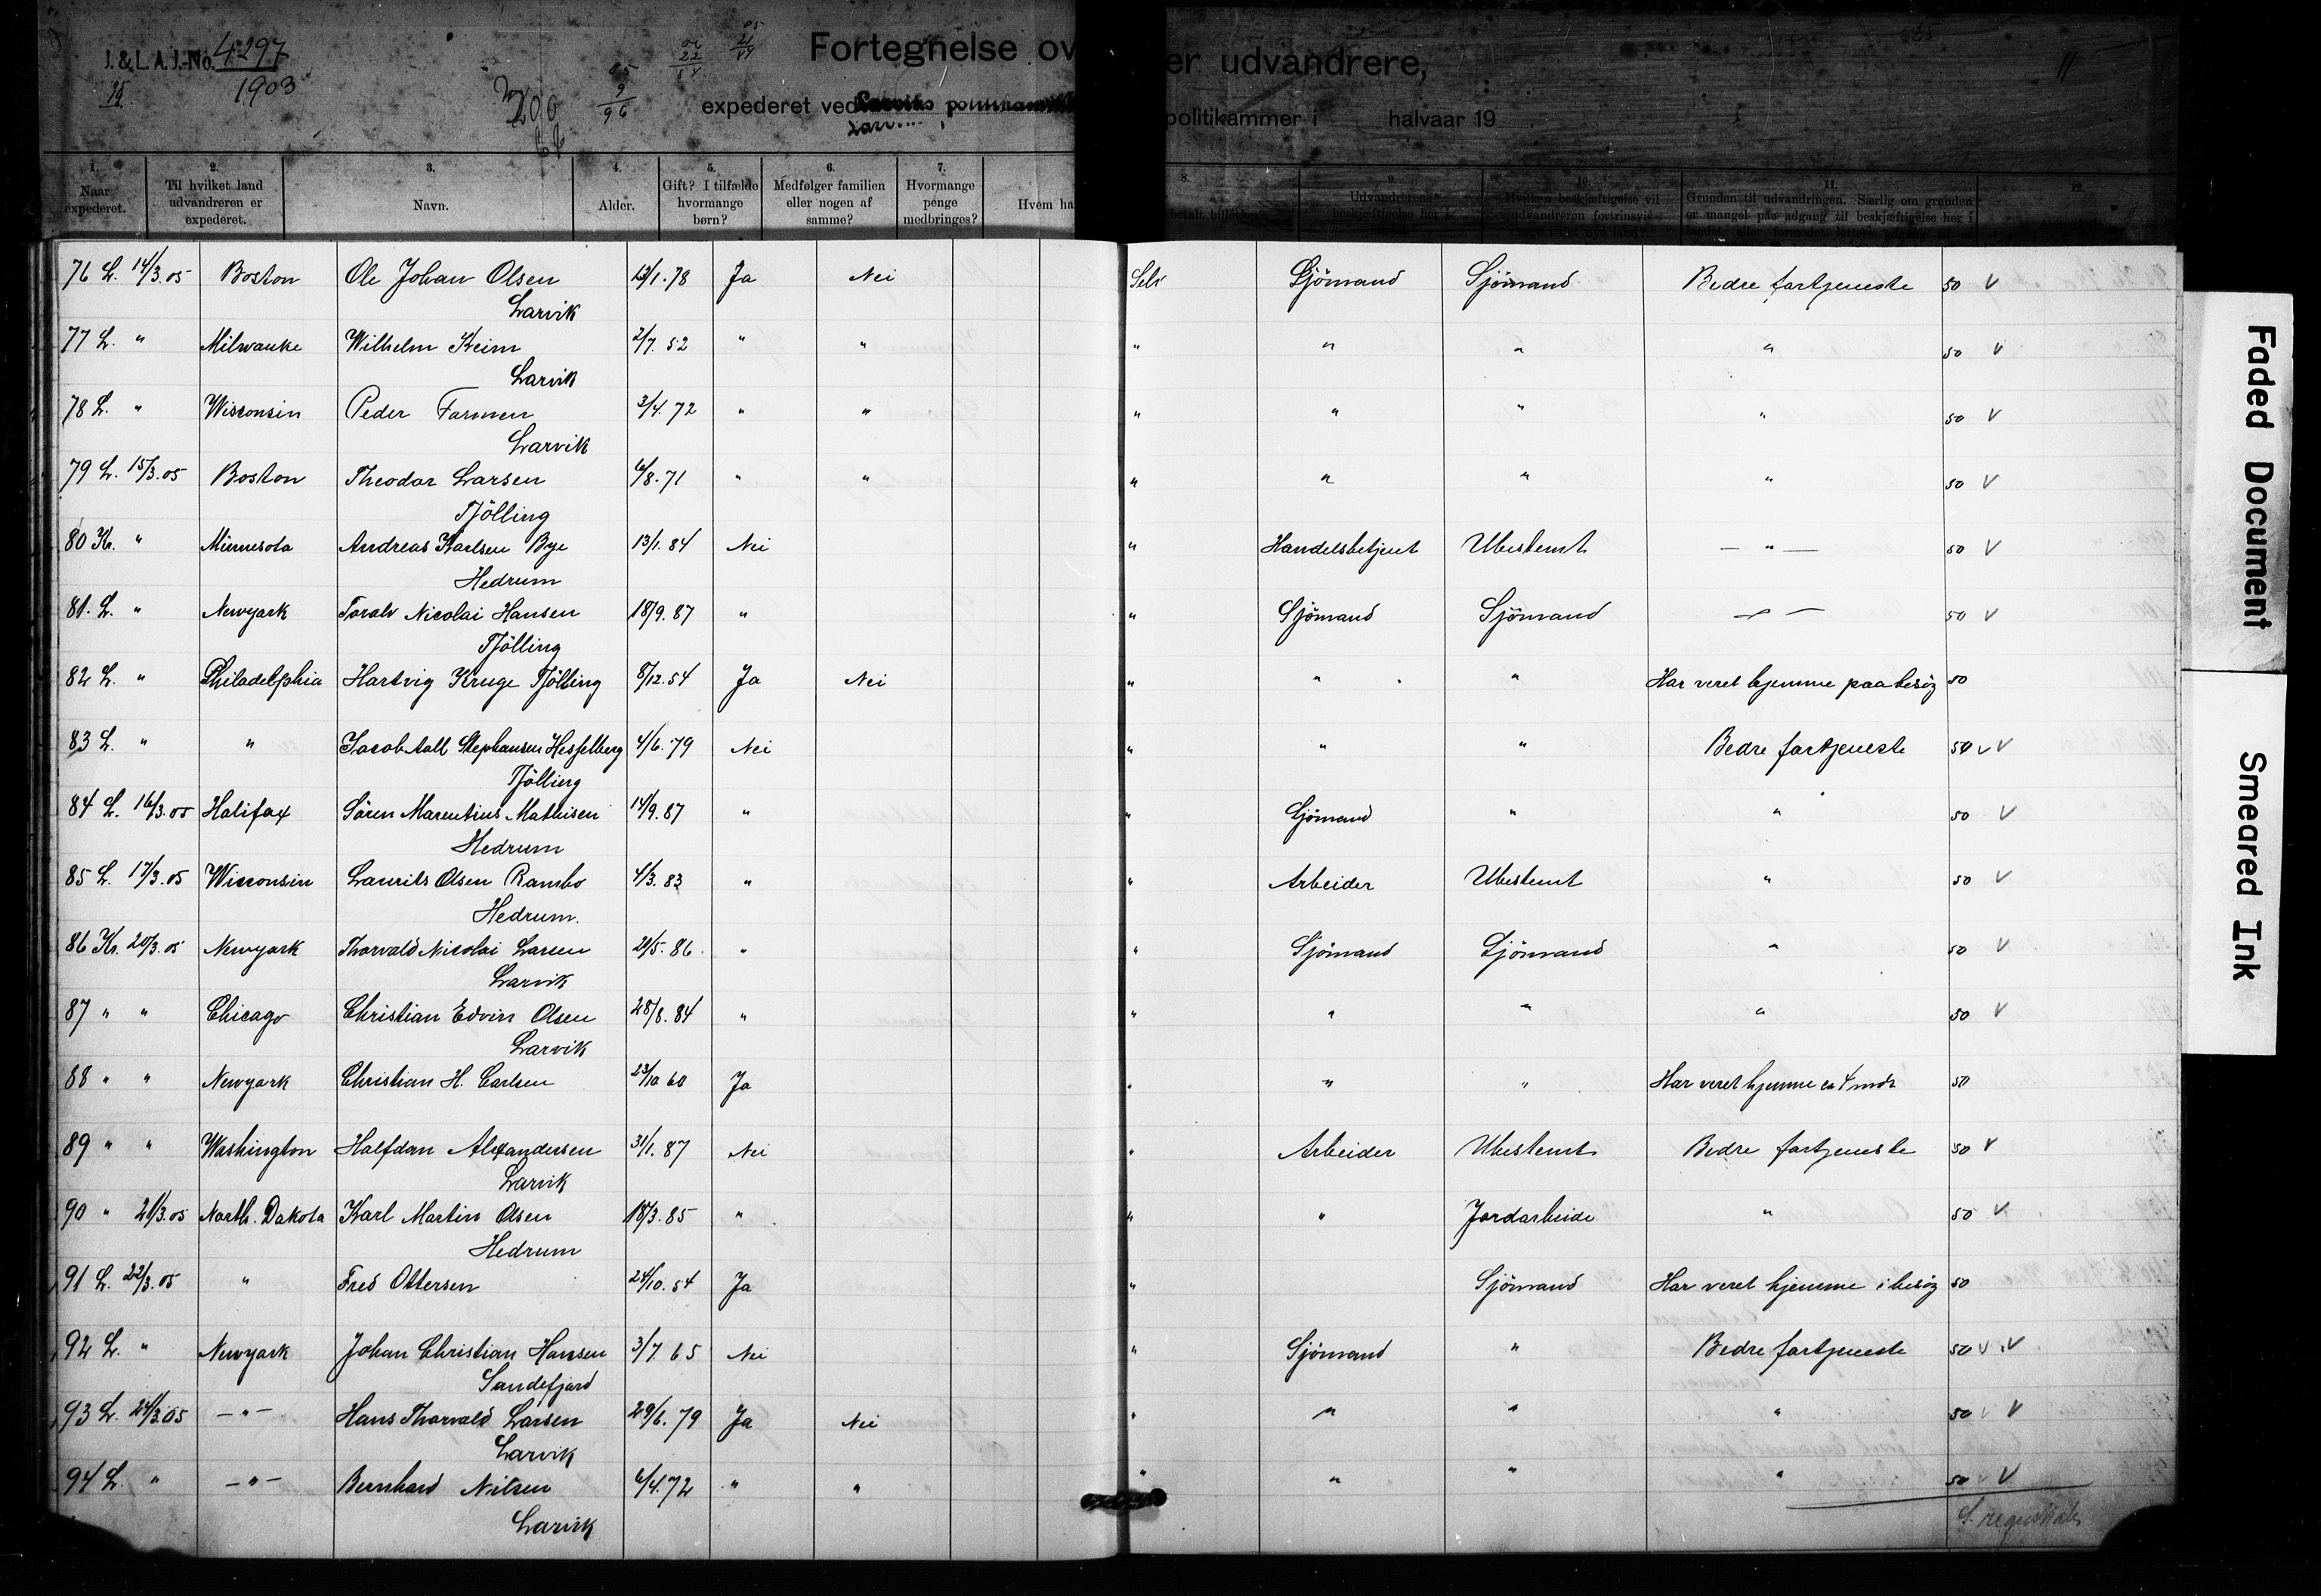 J. & L. A. J.-No. 4297
1903
200
Fortegnelse over udvandrere,
expederet ved politikammer i halvaar 19
1. Naar expederet.
2. Til hvilket land udvandreren er expederet.
3. Navn.
4. Alder.
5. Gift? I tilfælde hvormange børn?
6. Medfølger familien eller nogen af samme?
7. Hvormange penge medbringes?
8. Hvem ha betalt
9. Udvandrerens
10. Hvilken beskjæftigelse vil udvandreren fortrinsvis
11. Grunden til udvandringen. Særlig om grunden er mangel paa adgang til beskjæftigelse her i
12.
76 L. 14/3.05 Boston Ole Johan Olsen 13/1.78 Ja Nei Selv Sjömand Sjömand Bedre fortjeneste 50 V
Larvik
77 L. " Milwauke Wilhelm Keim 2/7.52 " " " " " " 50 V
Larvik
78 L. " Wisconsin Peder Farmen 3/4.72 " " " " " " 50 V
Larvik
79 L. 15/3.05 Boston Theodor Larsen 6/8.71 " " " " " " 50 V
Tjölling
80 Kr. " Minnesota Andreas Karlsen Bye 13/1.84 Nei " Handelsbetjent Ubestemt — " — 50 V
Hedrum
81. L. " Newyork Toralv Nicolai Hansen 18/9.87 " " Sjömand Sjömand — " — 50 V
Tjölling
82 L. " Philadelphia Hartvig Kruge Tjölling 8/12.54 Ja Nei " " " Har veret hjemme paa besög 50
83 L. " " Jacob Aall Stephansen Hesselberg 4/6.79 Nei " " " Bedre fortjeneste 50 v V
Tjölling
84 L. 16/3.05 Halifax Sören Marentius Mathisen 14/9.87 " " Sjömand " " 50 V
Hedrum
85 L. 17/3.05 Wisconsin Laurits Olsen Rambo 4/3.83 " " Arbeider Ubestemt " 50 V
Hedrum.
86 Kr. 20/3.05 Newyork Thorvald Nicolai Larsen 21/5.86. " " Sjömand Sjömand " 50 V
Larvik
87 " " Chicago Christian Edvin Olsen 28/8.84 " " " " " 50 V
Larvik
88 " " Newyork Christian H. Carlsen 23/10 60 Ja " " " Har veret hjemme ca 4 mdr 50
89 " " Washington Halfdan Alexandersen 31/1.87 Nei " Arbeider Ubestemt Bedre fortjeneste 50 V
Larvik
90 " 21/3.05 North. Dakota Karl Martin Olsen 18/3.85 " " " Jordarbeide " 50 V
Hedrum
91 L. 22/3.05 " Fred Ottersen 24/10.54 Ja " Sjömand Har veret hjemme i besög 50
92 L. " Newyork Johan Christian Hansen 3/7.65 Nei " Sjömand " Bedre fortjeneste 50 v V
Sandefjord
93 L. 24/3.05 — " — Hans Thorvald Larsen 29/6.79 Ja Nei " " " " 50 v V
Larvik
94 L. " — " — Bernhard Nilsen 6/4.72 " " " " " " 50 v V
Larvik
Faded Document
Smeared Ink